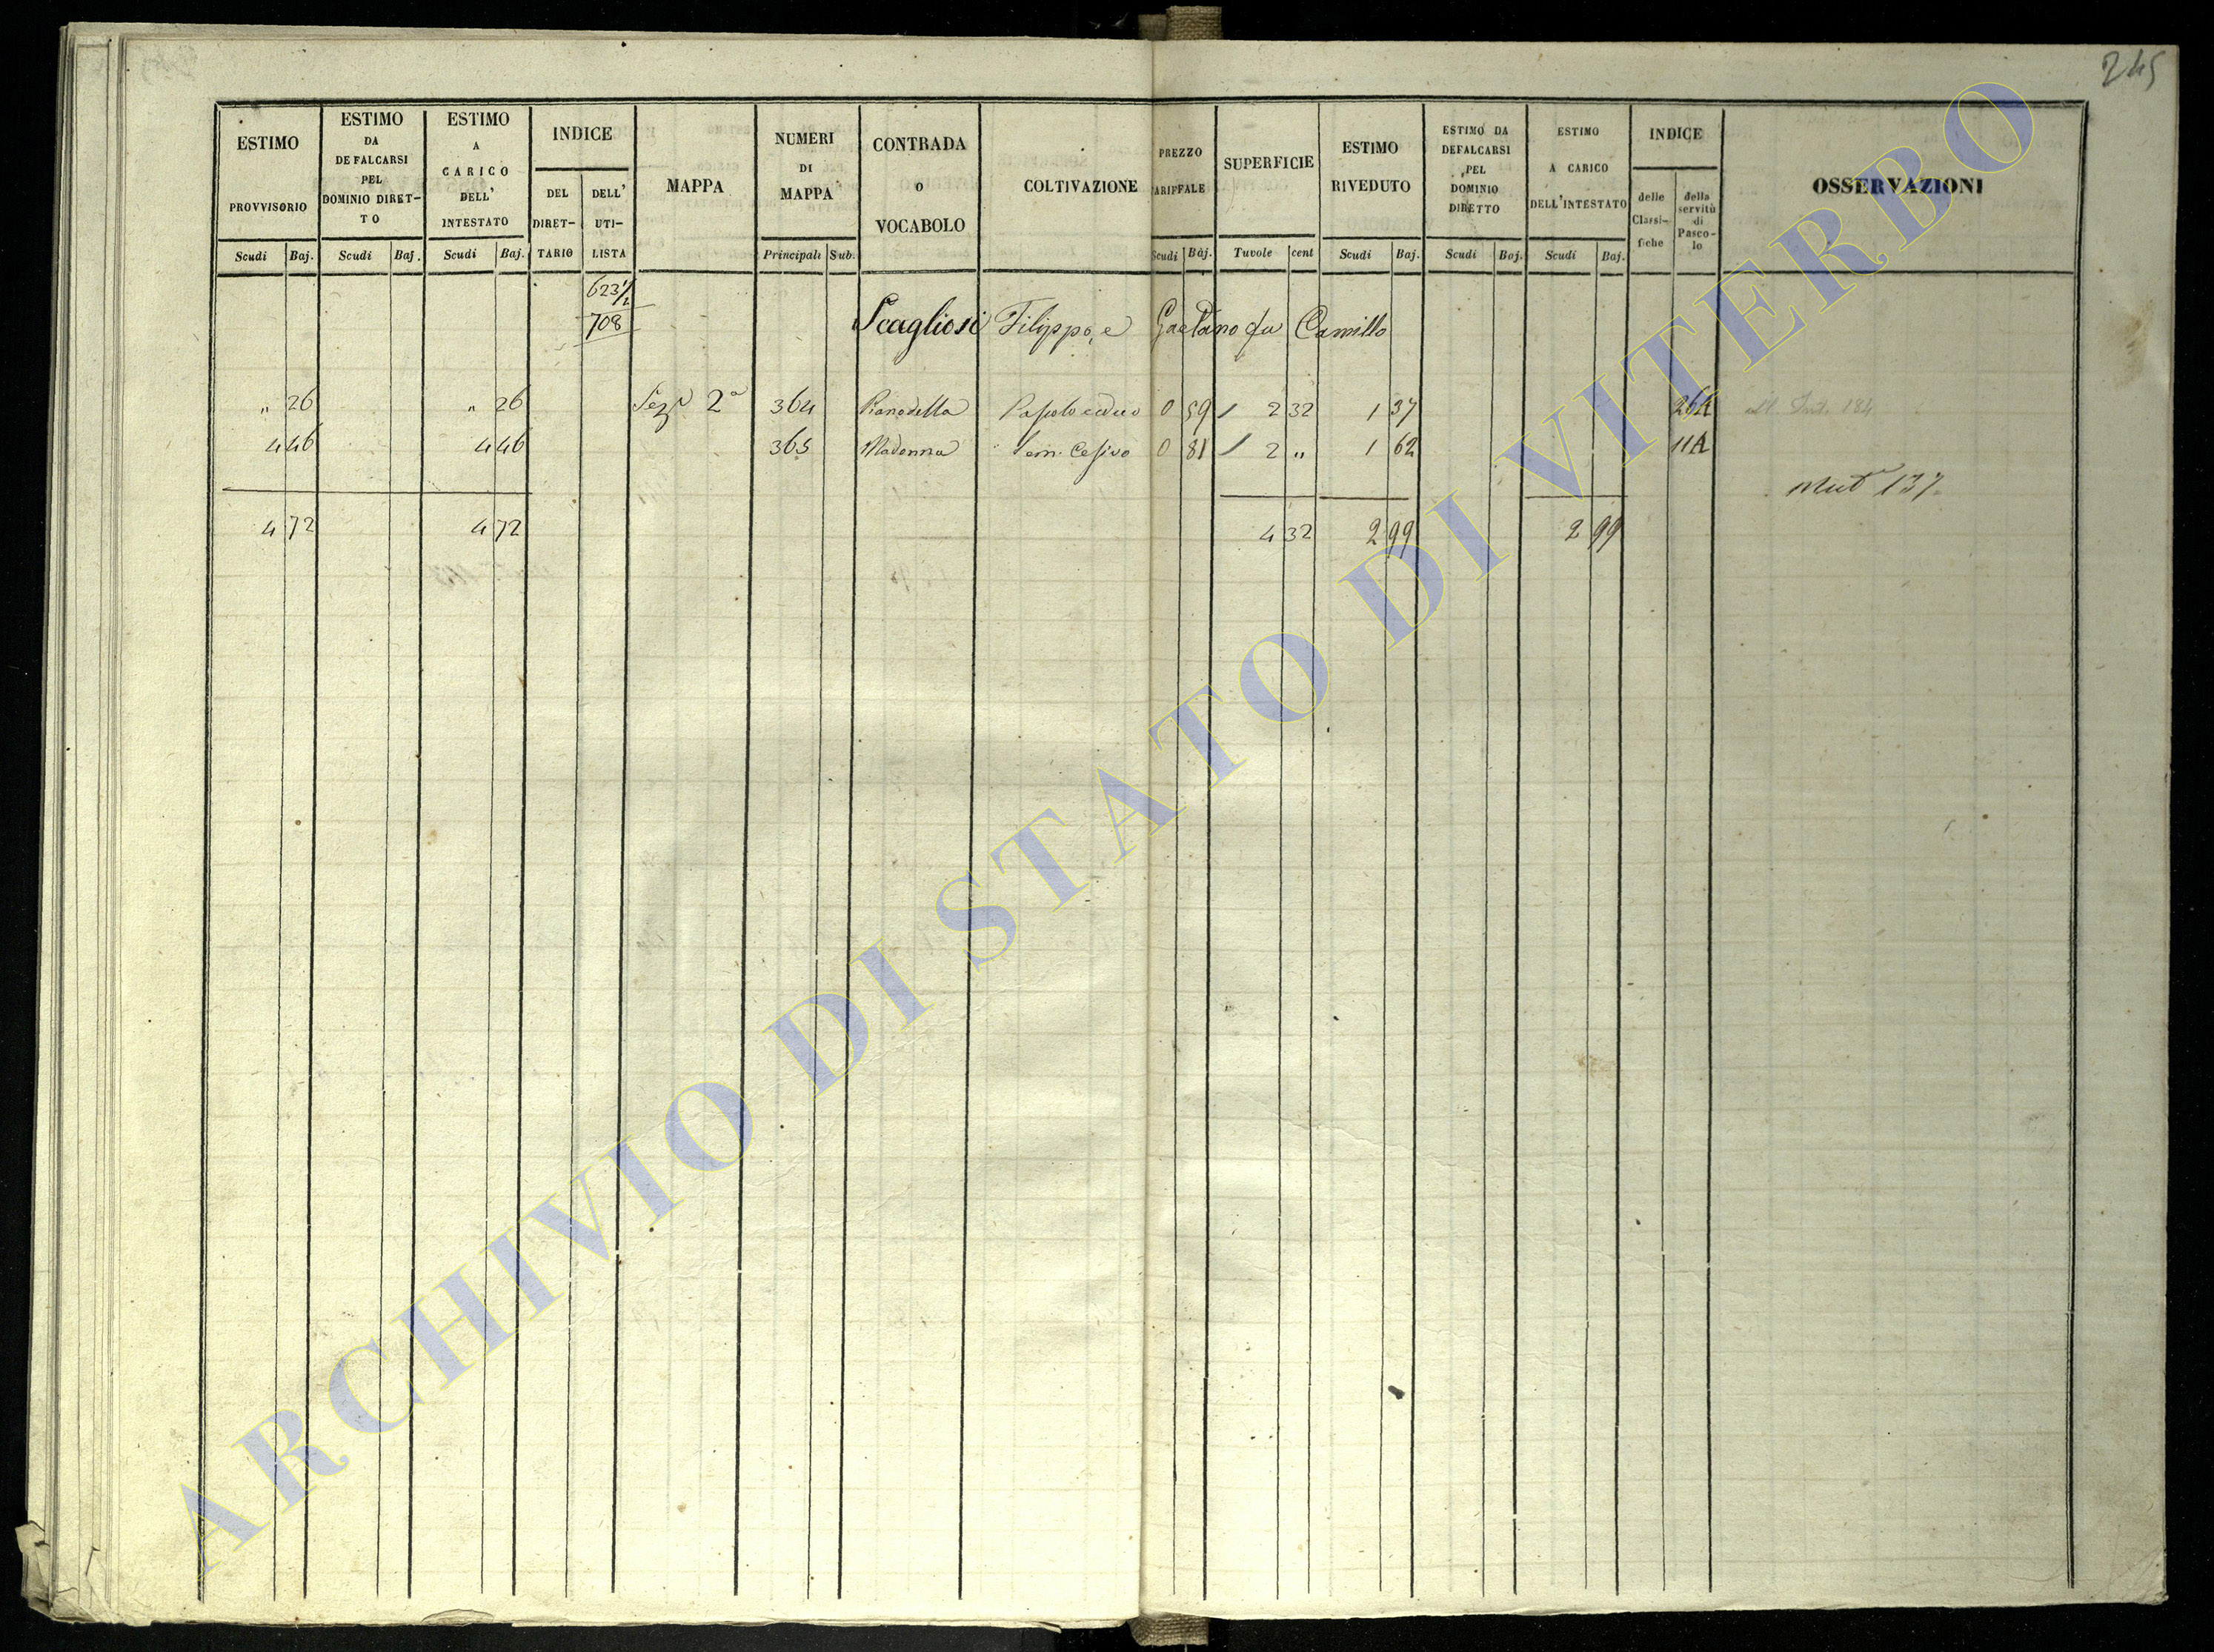 245
ESTIMO PROVVISORIO
Scudi Baj.
ESTIMO DA DEFALCARSI PEL DOMINIO DIRET-TO
Scudi Baj.
ESTIMO A CARICO DELL' INTESTATO
Scudi Baj.
INDICE
DEL DIRET-TARIO
DELL' UTI-LISTA
MAPPA
NUMERI DI MAPPA
Principali Sub.
CONTRADA O VOCABOLO
COLTIVAZIONE
PREZZO ARIFFALE
Scudi Baj.
SUPERFICIE
Tavole cent
ESTIMO RIVEDUTO
Scudi Baj.
ESTIMO DA DEFALCARSI PEL DOMINIO DIRETTO
Scudi Baj.
ESTIMO A CARICO DELL'INTESTATO
Scudi Baj.
INDICE
delle Classi-fiche
della servitù di Pasco-lo
OSSERVAZIONI
623 1/2
708
Scagliosi Filippo, e Gaetano fu Camillo
" 26 " 26 Sez.e 2a 364 Pianodella Pascolo ceduo 0 59 2 32 1 37 26A
4 46 4 46 365 Madonna Sem. Cesivo 0 81 2 " 1 62 11A
Mut 137
4 72 4 72 4 32 2 99 2 99
ARCHIVIO DI STATO DI VITERBO